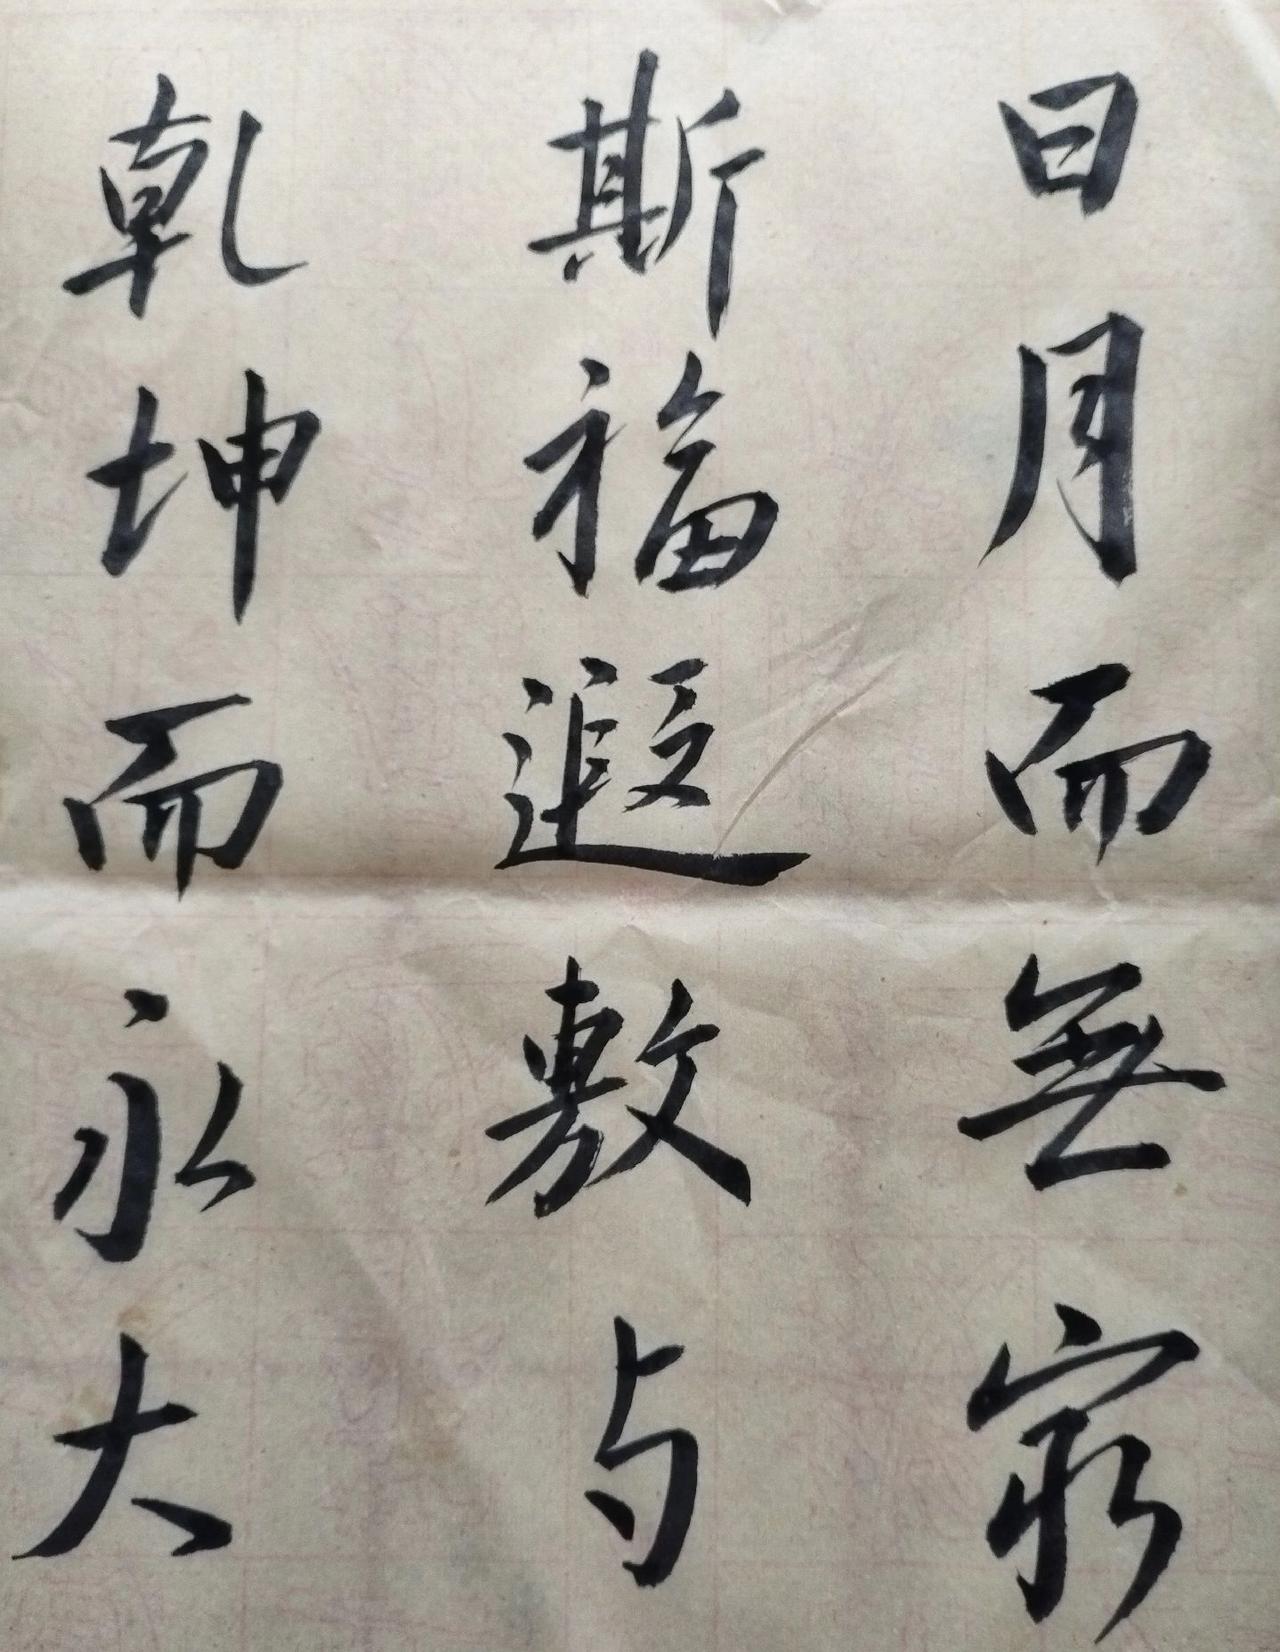 日月而無窮
斯福遐敷与
乾坤而永大